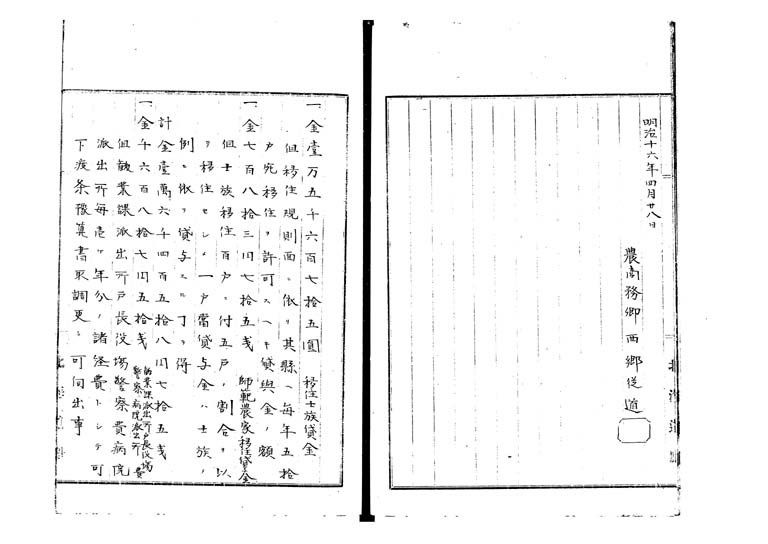 明治十六年四月廿八日
農商務卿西郷従道
一金壹万五千六百七拾五圓 移住士族貸金
但移住規則面ニ依リ其縣ヘ毎年五拾
戸宛移住ヲ許可スヘキ貸與金ノ額
一金七百八拾三円七拾五戔 師範農家移住貸金
但士族移住百戸ニ付五戸ノ割合ヲ以
テ移住セシメ一戸當貸与金ハ士族ノ
例ニ依リ貸与スル丁ヲ得
計金壹萬六千四百五拾八円七拾五戔
一金千六百八拾七円五拾戔 勧業課派出所戸長役場警察病院派出所費
但勧業課派出所戸長役場警察費病院
派出所毎壱ヶ年分ノ諸経費トシテ可
下渡条豫算書取調更ニ可伺出事